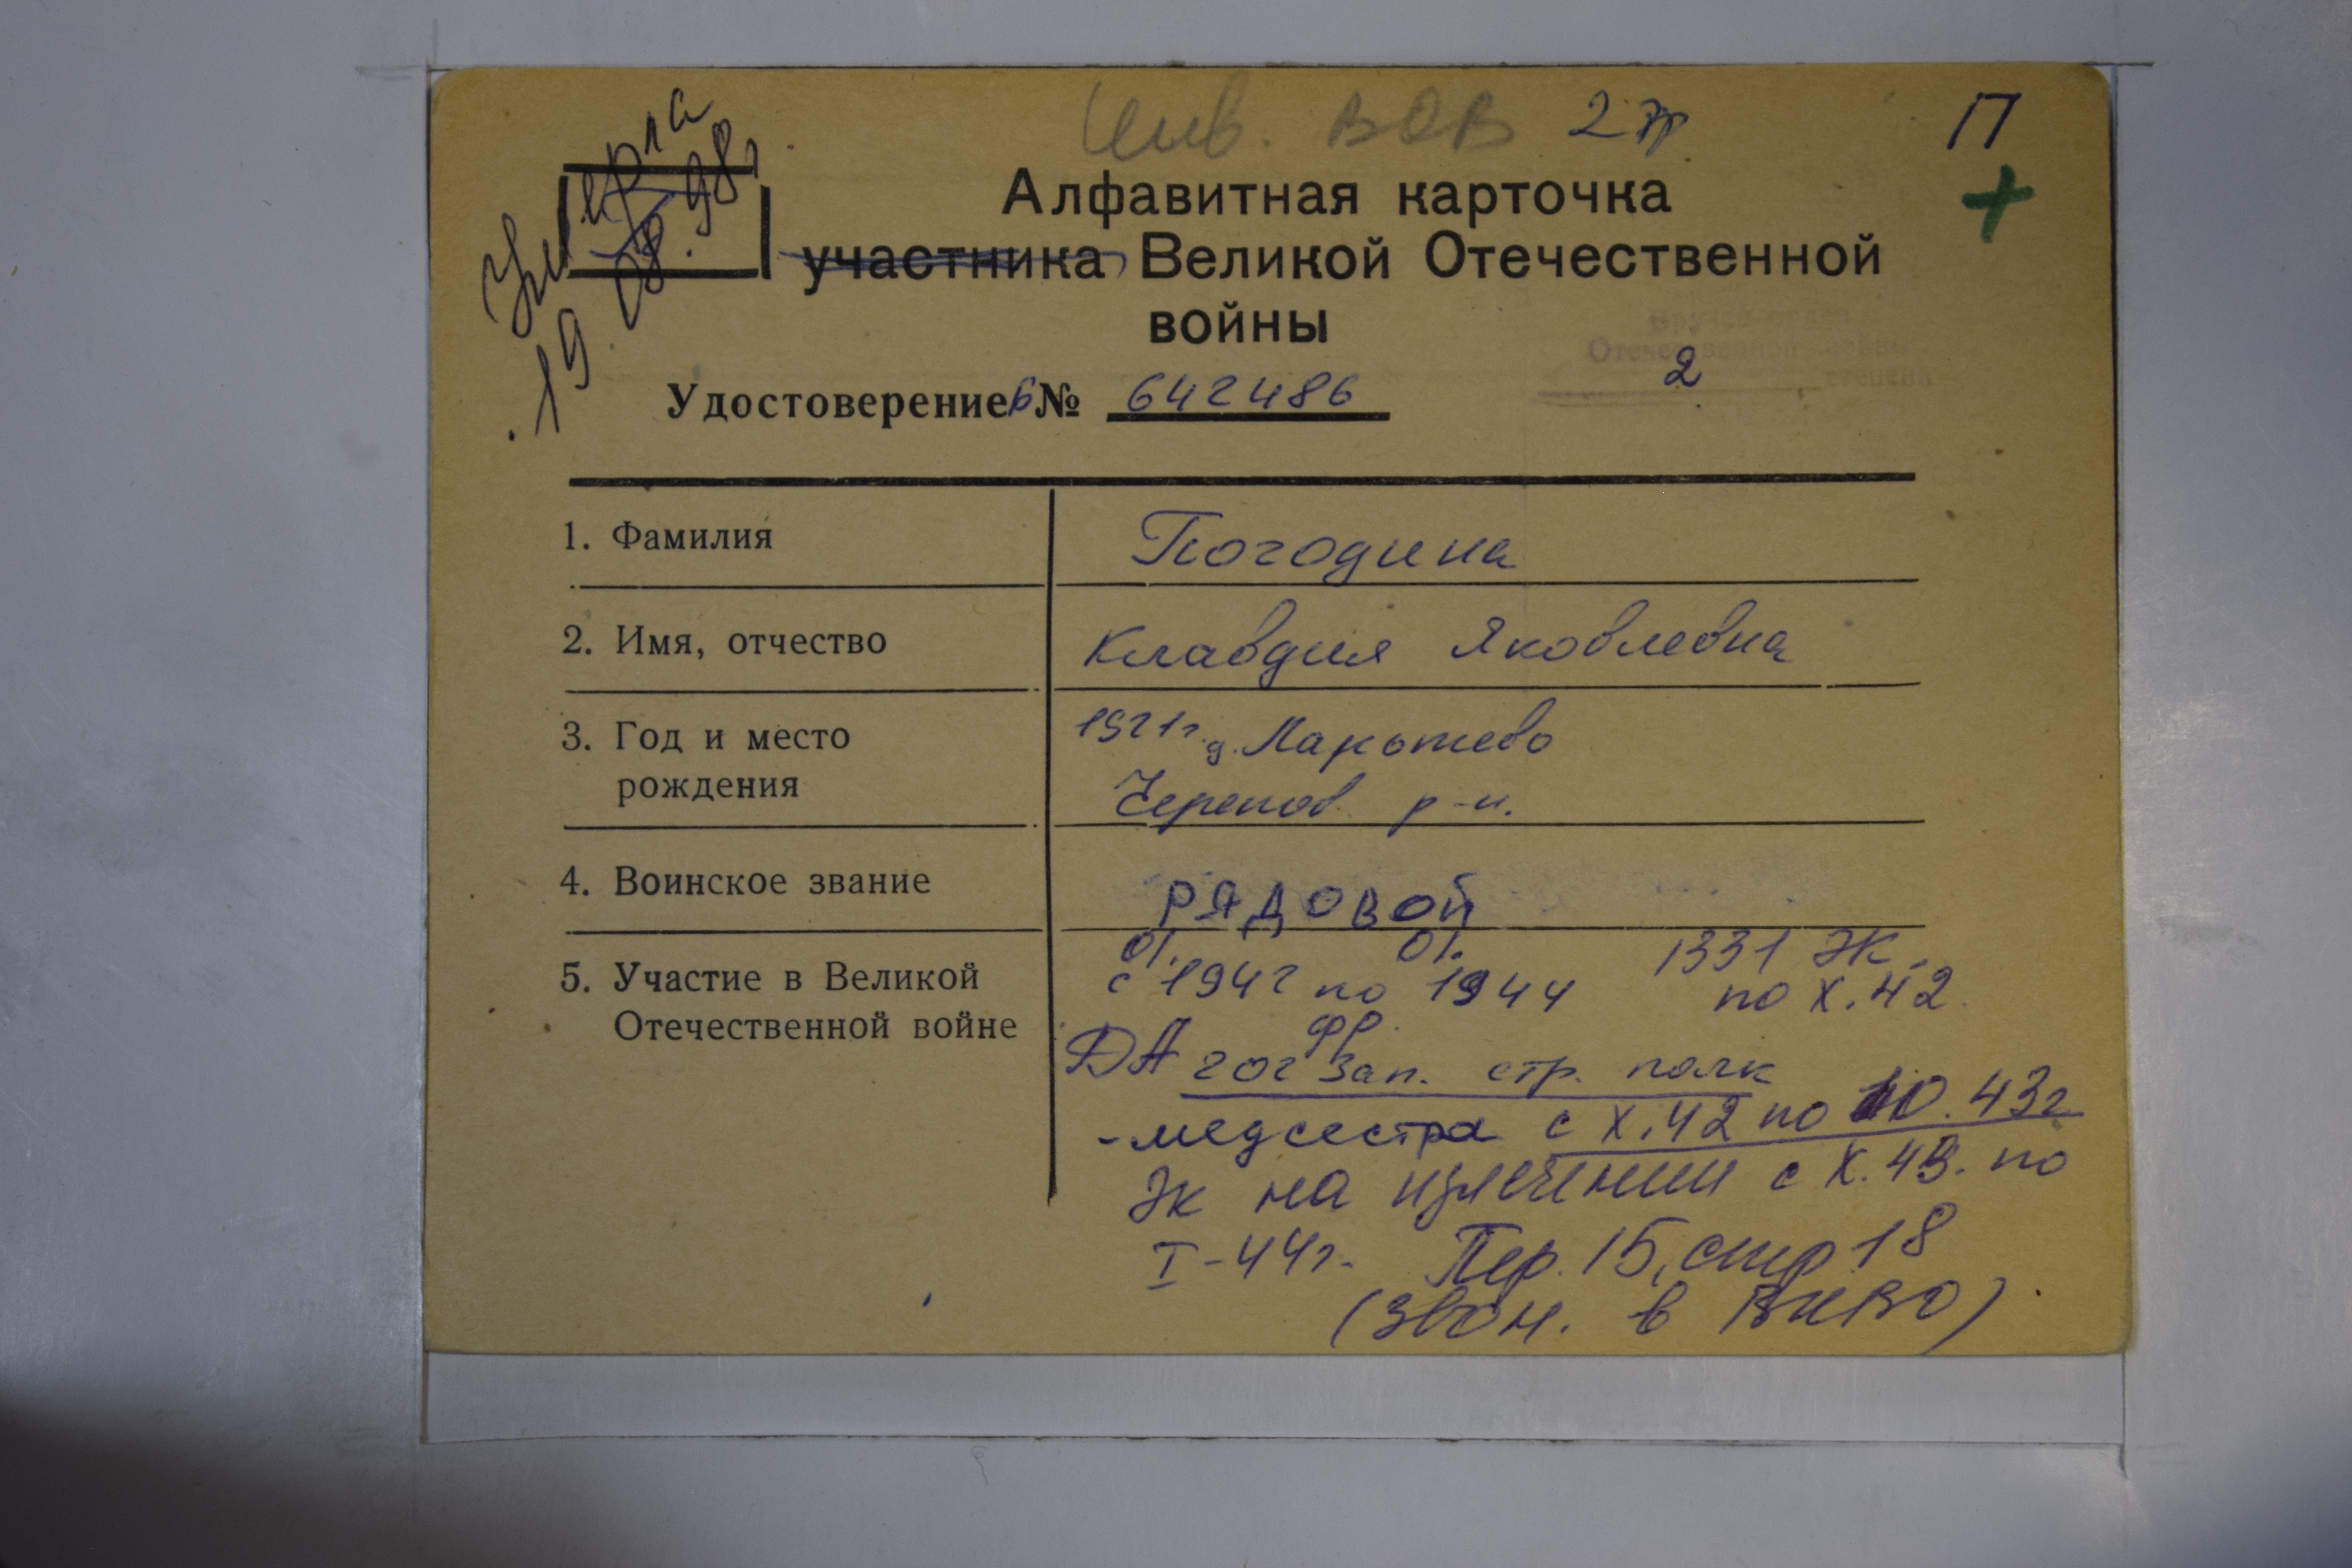 Инв. ВОВ 2 гр
П
+
Умерла
19.08.98г
Алфавитная карточка
участника Великой Отечественной
войны
Вручен орден
Отечественной войны
2 степени
Удостоверение Б № 642486
1. Фамилия Погодина
2. Имя, отчество Клавдия Яковлевна
3. Год и место рождения 1921г. д.
Черепов р-н.
4. Воинское звание РЯДОВОЙ
5. Участие в Великой Отечественной войне
01. 01.
с 1942 по 1944
1331 ЭК.
по X.42.
ДА 202 зап. стр. полк
фр.
- медсестра с X.42 по 10.43г
ЭК на излечении с X.43. по
I-44г. Пер. 15, стр 18